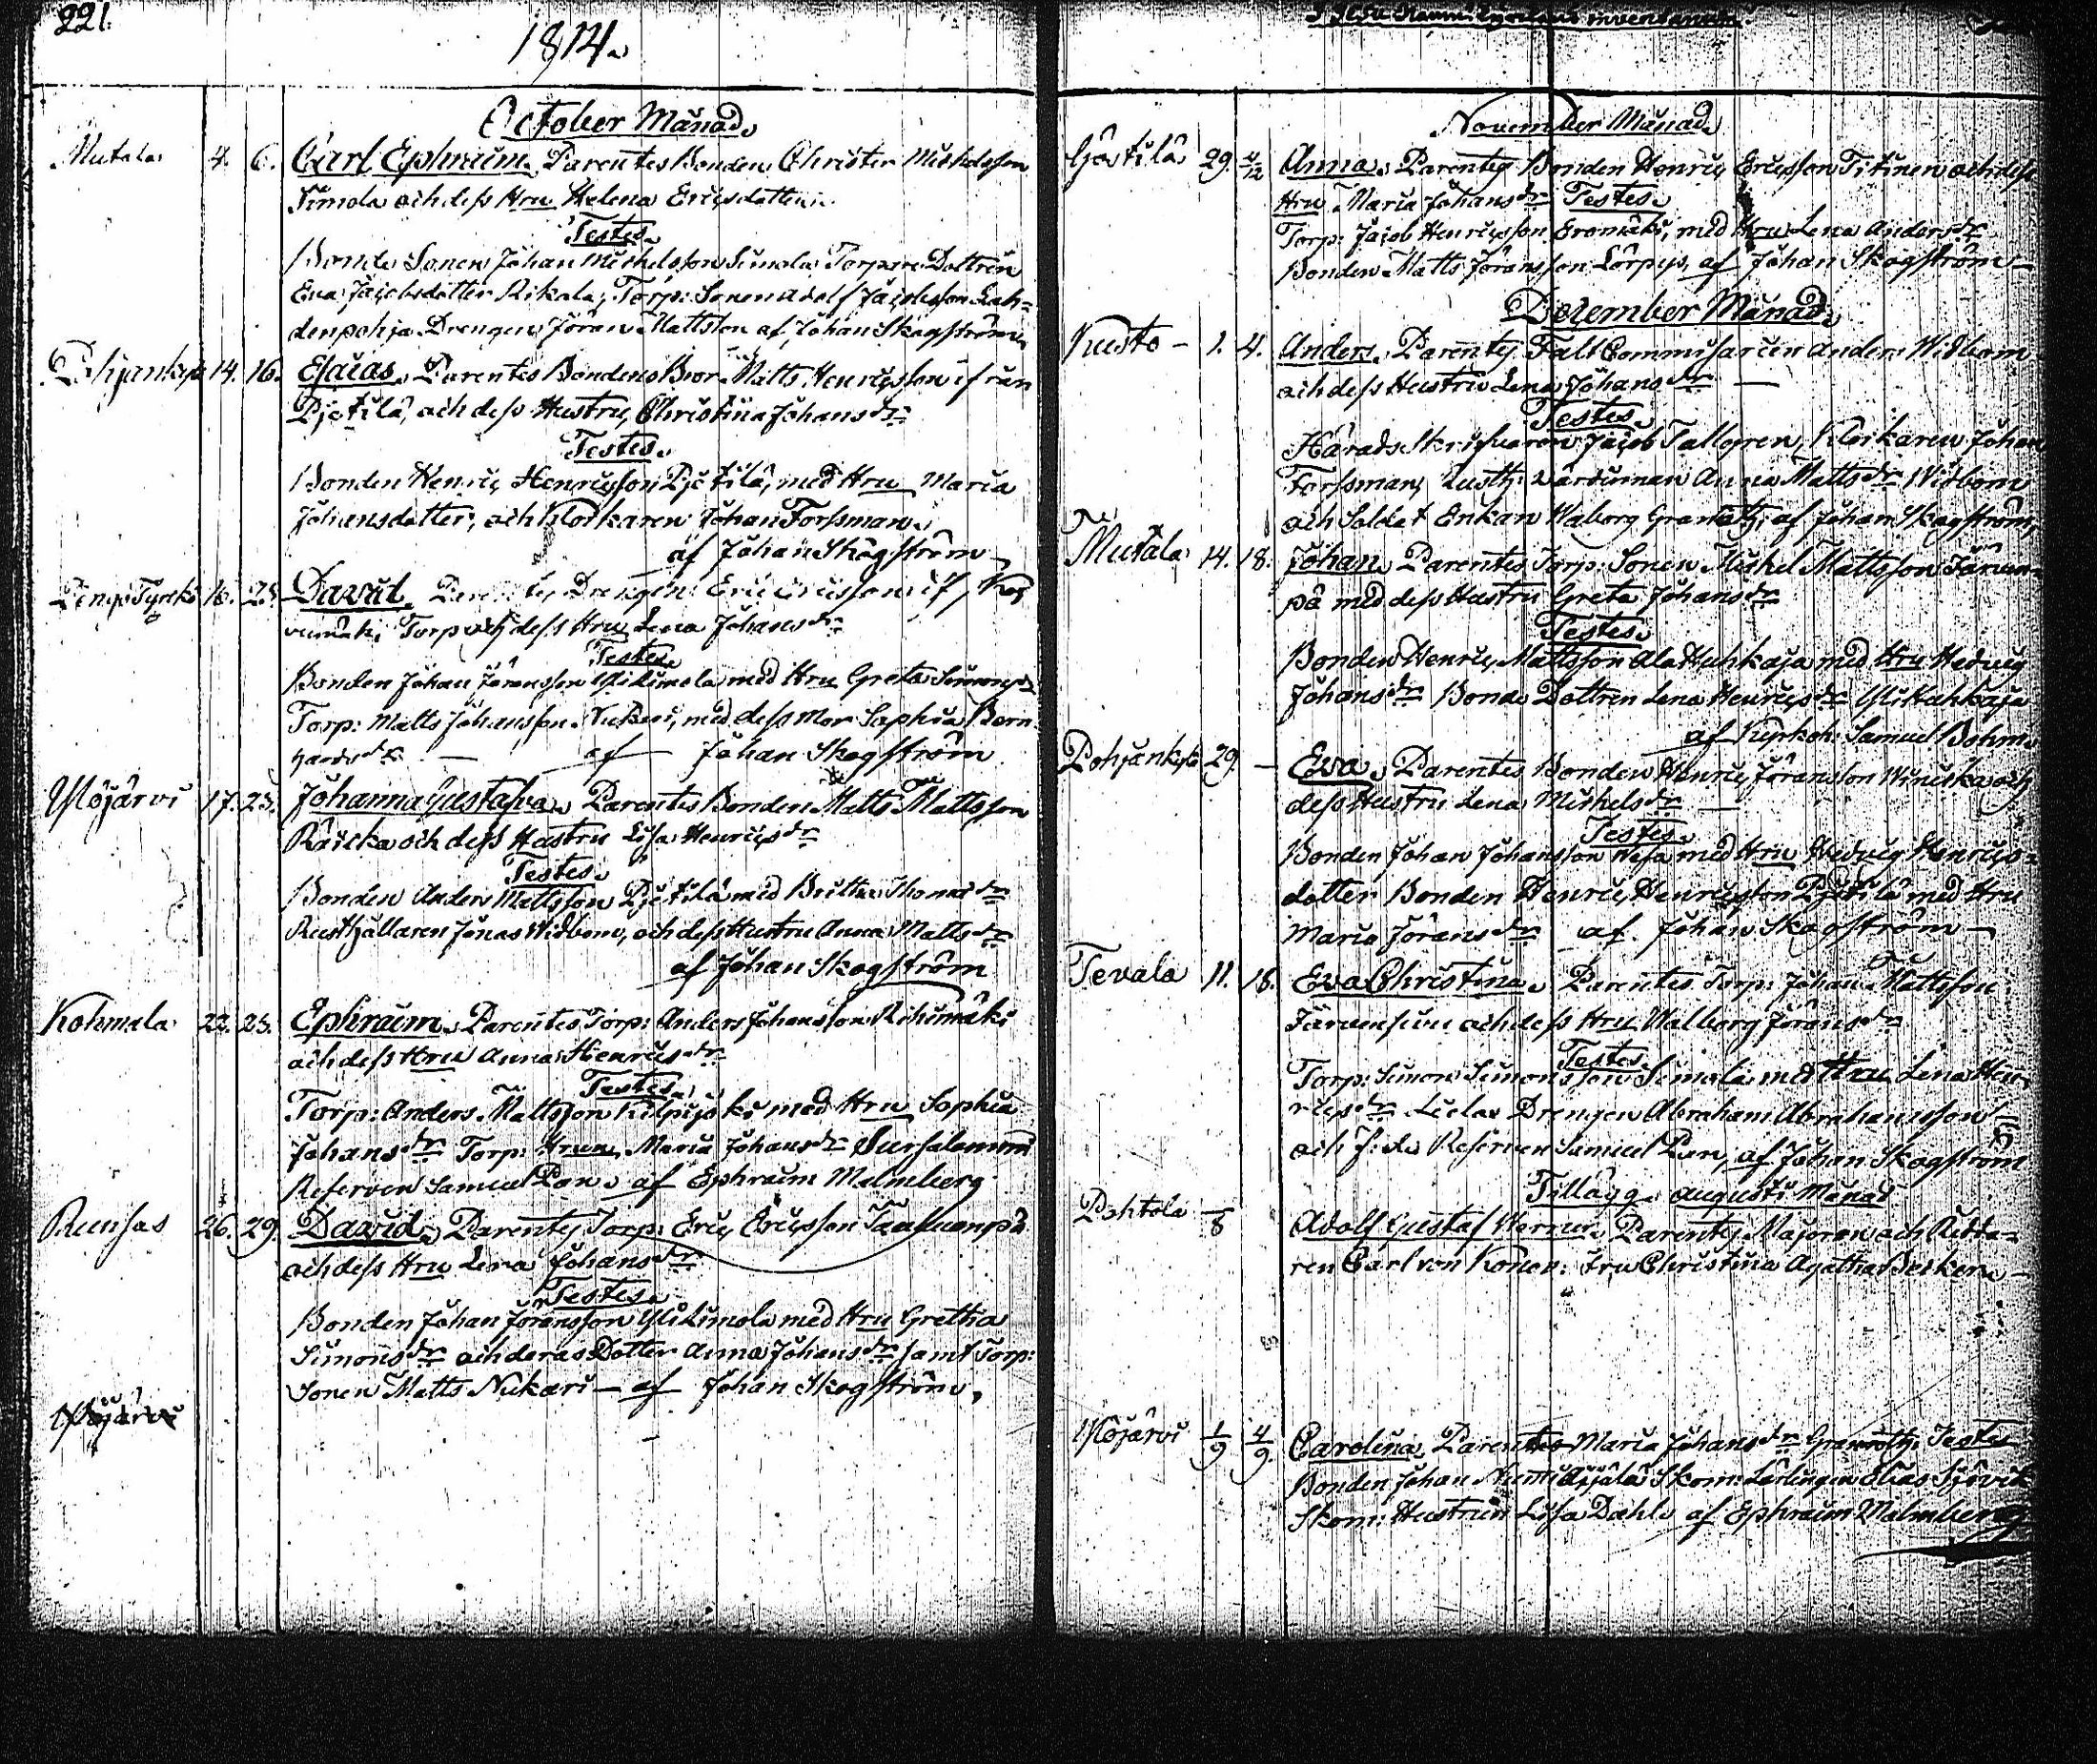 221.
1814.
October Månad.
Mutala 4. 6. Carl Ephraim. Parentes Bonden Christer Michelsson
Simola och dess Hru Helena Ericsdotter.
Testes.
Bonde Sonen Johan Michelsson Simola Torpare Dottren
Eva Jacobsdotter Rikala, Torp: Sonen Adolf Jacobsson Lah=
denpohja Drengen Jöran Mattsson af Johan Skogström.
Pohjankylä 14. 16. Esaias. Parentes Bondens Bror Matts Henricsson ifrån
Pjetilä, och dess Hustru, Christina Johansdr
Testes.
Bonden Henric Henricsson Pjetilä, med Hru Maria
Johansdotter, och Klockaren Johan Forssman.
af Johan Skogström
16. 23. David. Drengen Eric Ericsson
Torp och dess Hru Lena Johansdr
Testes.
Bonden Johan Jöransson Yli Simola med Hru Greta Simonsdr
Torp: Matts Johansson Nickari, med dess mor Sophia Bern
hardsdr — af Johan Skogström
Ylöjärvi 17. 23. Johanna Gustafva. Parentes Bonden Matts Mattsson
Räicka och dess Hustru Lisa Henricsdr
Testes.
Bonden Anders Mattsson Pjetilä med Britha Thomasdr
Rusthållaren Jonas Widbom, och dess Hustru Anna Mattsdr
af Johan Skogström
Kohmala 22. 23. Ephraim. Parentes Torp: Anders Johansson Rihimäki
och dess Hru Anna Henricsdr
Testes.
Torp: Anders Mattsson Kilpijoki med Hru Sophia
Johansdr Torp: Hrun Maria Johansdr
Reserven Samuel Pan. af Ephraim Malmberg
Runsas 26. 29. David. Parentes Torp: Eric Ericsson
och dess Hru Lena Johansdr
Testes.
Bonden Johan Jöransson Yli Simola med Hru Gretha
Simonsdr och deras Dotter Anna Johansdr samt Torp:
Sonen Matts Nickari — af Johan Skogström,
Ylöjärvi
November Månad.
29. 4/12 Anna. Parentes Bonden Henric Ericsson Titinen och dess
Hru Maria Johansdr Testes.
Torp: Jacob Henricsson Eromäki, med Hru Lena Andersdr
Bonden Matts Jöransson Lörpys, af Johan Skogström —
December Månad.
Kusto — 1. 4. Anders. Parentes Fält Commisarien Anders Widbom
och dess Hustru Lena Johansdr —
Testes.
Härads Skrifvaren Jacob Tallgren, Klockaren Johan
Forssman, Rusth: värdinnan Anna Mattsdr Widbom
och Soldat Enkan Walborg Granroth, af Johan Skogström,
Mutala 14. 18. Johan. Parentes Torp: Sonen Michel Mattsson Järven=
pä med dess Hustru Greta Johansdr
Testes.
Bonden Henric Mattsson Ala Hahkaja med Hru Hedvig
Johansdr Bonde Dottren Lena Henricsdr Yli Hahkaja
af Kyrkoh: Samuel Bohm.
Pohjankylä 29. — Eva. Parentes Bonden Henric Jöransson Winicka och
dess Hustru Lena Michelsdr —
Testes.
Bonden Johan Johansson Wesa med Hru Hedvig Henrics=
dotter Bonden Henric Henricsson Pjetilä med Hru
Maria Jöransdr af. Johan Skogström —
Tevala 11. 18. Eva Christina. Parentes Torp: Johan Mattsson
Järvensivu och dess Hru Walborg Jöransdr
Testes.
Torp: Simon Simonsson Simola med Hru Lena Hen
ricsdr Drengen Abraham Abrahamsson
och Reserven Samuel Pan, af Johan Skogström
Tillägg. Augusti Månad
Pohtola 8 Adolf Gustaf Werner. Parentes Majoren och Ridda=
ren Carl von Konow: Fru Christina Agatha Becker. —
Ylöjärvi 1/9 4/9. Carolina. Parentes Maria Johansdr Granroth. Testes
Bonden Johan Niemi Äijälä Skom: Lärlingen Elias Sjövik
Skom: Hustrun Lisa Dahl. af Ephraim Malmberg